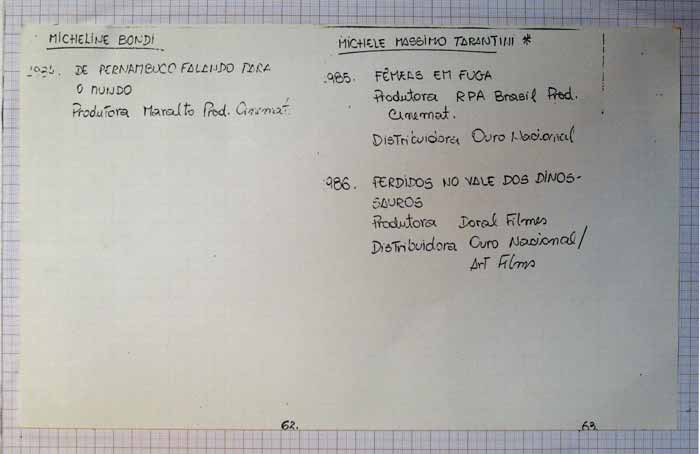 MICHELINE BONDI
DE PERNAMBUCO FALANDO PARA
O MUNDO
Produtora Maralto Prod. Cinemat.
62.
MICHELE MASSIMO TARANTINI *
.985. FÊMEAS EM FUGA
Produtora RPA Brasil Prod.
Cinemat.
Distribuidora Ouro Nacional
.986. PERDIDOS NO VALE DOS DINOS-
SAUROS
Produtora Doral Filmes
Distribuidora Ouro Nacional/
Art Films
63